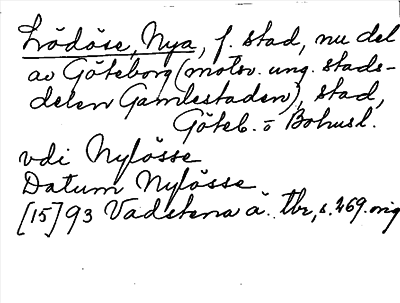 Lödöse, Nya, f. stad, nu del
av Göteborg (motsv. ung. stads-
delen Gamlestaden), stad,
Göteb. o Bohusl.
vdi Nylösse
Datum Nylösse
[15]93 Vadstena ä. tbr, s. 269. orig